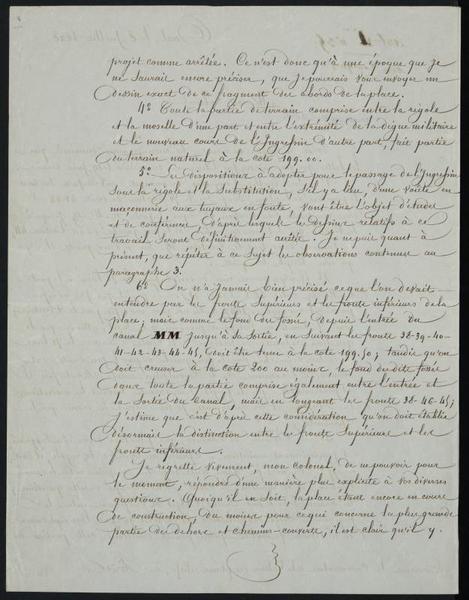 projet comme arrêtée. Ce n'est donc qu'à une époque que je
ne saurais encore préciser, que je pourrais vous envoyer un
dessin exact de ce fragment des abords de la place.
4º Toute la partie de terrain comprise entre la rigole
et la moselle d'une part et entre l'extrémité de la digue militaire
et le nouveau cours de l'Ingressin d'autre part, fait partie
du terrain naturel à la cote 199.00.
5º Les dispositions à adopter pour le passage de l'Ingressin
sous la rigole et la substitution, s'il y a lieu, d'une voûte en
maçonnerie aux tuyaux en fonte, vont être l'objet d'études
et de conférences, d'après lesquelles les dessins relatifs à ce
travail seront définitivement arrêtés. Je ne puis quant à
présent, que répéter à ce sujet les observations contenues au
paragraphe 3.
6º On n'a jamais bien précisé ce que l'on devait
entendre par les fronts supérieurs et les fronts inférieurs de la
place; mais comme le fond du fossé, depuis l'entrée du
canal MM jusqu'à sa sortie, en suivant les fronts 38-39-40-
41-42-43-44-45, doit être tenu à la cote 199.50; tandis qu'on
doit creuser à la cote 200 au moins, le fond des dits fossés
dans toute la partie comprise également entre l'entrée et
la sortie du canal, mais en longeant les fronts 38-46-45;
j'estime que c'est d'après cette considération qu'on doit établir
désormais la distinction entre les fronts supérieurs et les
fronts inférieurs.
Je regrette vivement, mon colonel, de ne pouvoir pour
le moment, répondre d'une manière plus explicite à vos diverses
questions. Quoiqu'il en soit, la place étant encore en cours
de construction, du moins pour ce qui concerne la plus grande
partie des dehors et chemins-couverts, il est clair qu'il y